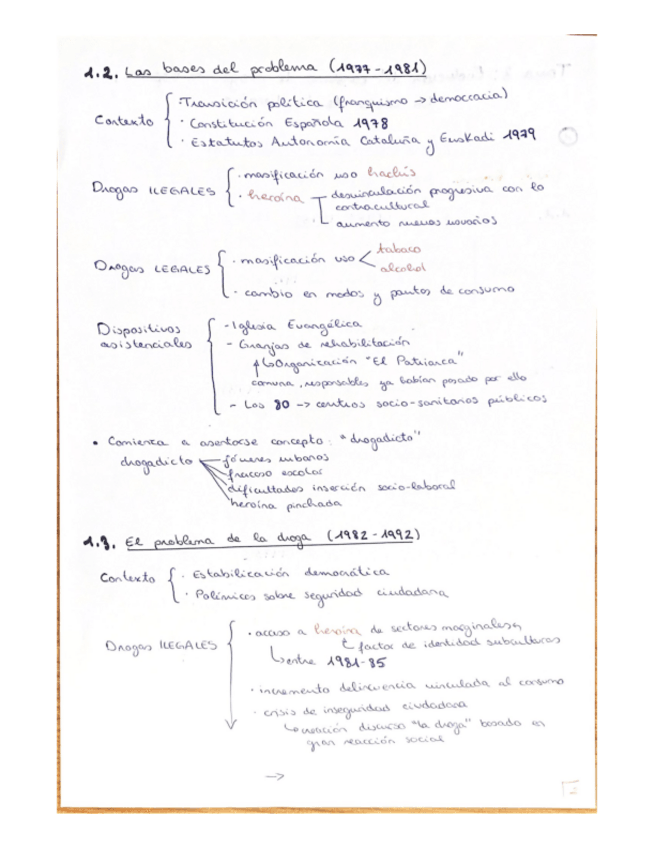 1.2. Las bases del problema (1977-1981)
Contexto
· Transición política (franquismo → democracia)
· Constitución Española 1978
· Estatutos Autonomía Cataluña y Euskadi 1979
Drogas ILEGALES
· masificación uso hachís
· heroína
desvinculación progresiva con lo
contracultural
aumento nuevos usuarios
Drogas LEGALES
· masificación uso
tabaco
alcohol
· cambio en modos y pautas de consumo
Dispositivos
asistenciales
- Iglesia Evangélica
- Granjas de rehabilitación
↳ Organización "El Patriarca"
comuna, responsables ya habían pasado por ello
- Los 80 -> centros socio-sanitarios públicos
• Comienza a asentarse concepto: "drogadicto"
drogadicto
jóvenes urbanos
fracaso escolar
dificultades inserción socio-laboral
heroína pinchada
1.3. El problema de la droga (1982-1992)
Contexto
· Estabilización democrática
· Polémicas sobre seguridad ciudadana
Drogas ILEGALES
· acceso a heroína de sectores marginales
factor de identidad subculturas
entre 1981-85
· incremento delincuencia vinculada al consumo
· crisis de inseguridad ciudadana
↳ creación discurso "la droga" basado en
gran reacción social
→